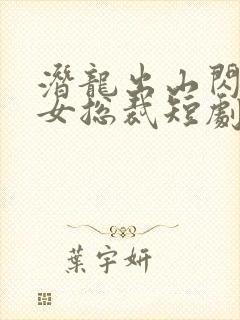 潛龍出山閃
女總裁短劇
葉宇妍